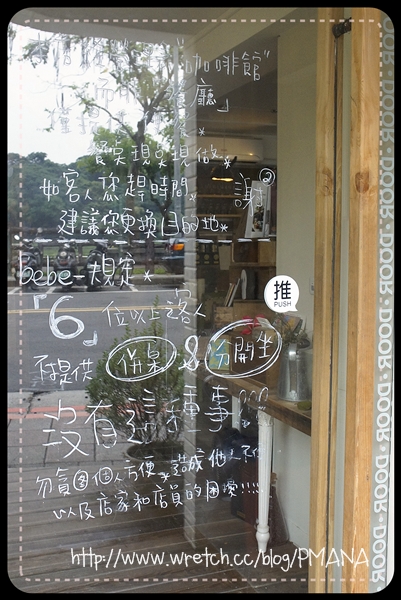 咖啡館"
廳」
餐桌現桌現做*
如客人您趕時間*
謝②
建議您更換目的地*
bebe-規定*
「6」位以上之客人
推
PUSH
不提供 併桌 & 分開坐
沒有這種事!!!
勿貪圖個人方便*造成他人不便
以及店家和店員的困擾!!!!
DOOR·DOOR·DOOR·DOOR·DOOR·DOOR·DOOR
http://www.wretch.cc/blog/PMANA